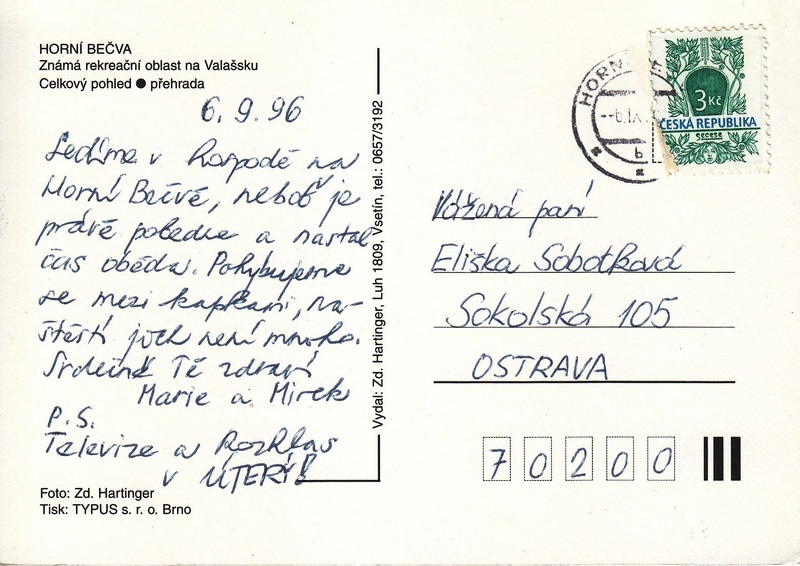 HORNÍ BEČVA
Známá rekreační oblast na Valašsku
Celkový pohled ● přehrada
6. 9. 96
Sedíme v hospodě na
Horní Bečvě, neboť je
právě poledne a nastal
čas oběda. Pohybujeme
se mezi kapkami, na-
štěstí jich není mnoho.
Srdečně Tě zdraví
Marie a Mirek
P.S.
Televize a Rozhlas
v ÚTERÝ!
Foto: Zd. Hartinger
Tisk: TYPUS s. r. o. Brno
Vydal: Zd. Hartinger, Luh 1809, Vsetín, tel.: 0657/3192
HORN
-6.IX.
b
3 Kč
ČESKÁ REPUBLIKA
SECESE
Vážená paní
Eliška Sobotková
Sokolská 105
OSTRAVA
70200